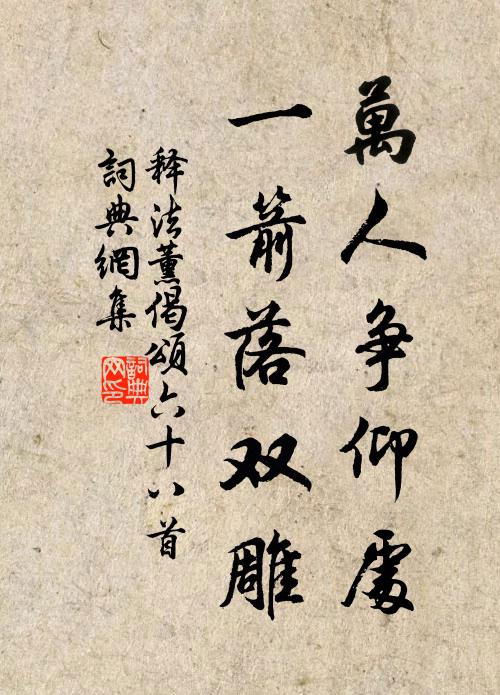 萬人争仰處
一箭落双雕
释法薰偈頌六十八首
詞典網集
詞典
网印